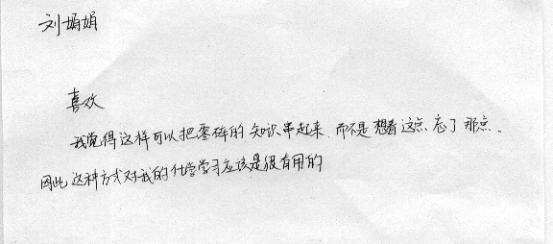 刘娟娟
喜欢
我觉得这样可以把零碎的知识串起来、而不是想着这点忘了那点、
因此这种方式对我的化学学习应该是很有用的